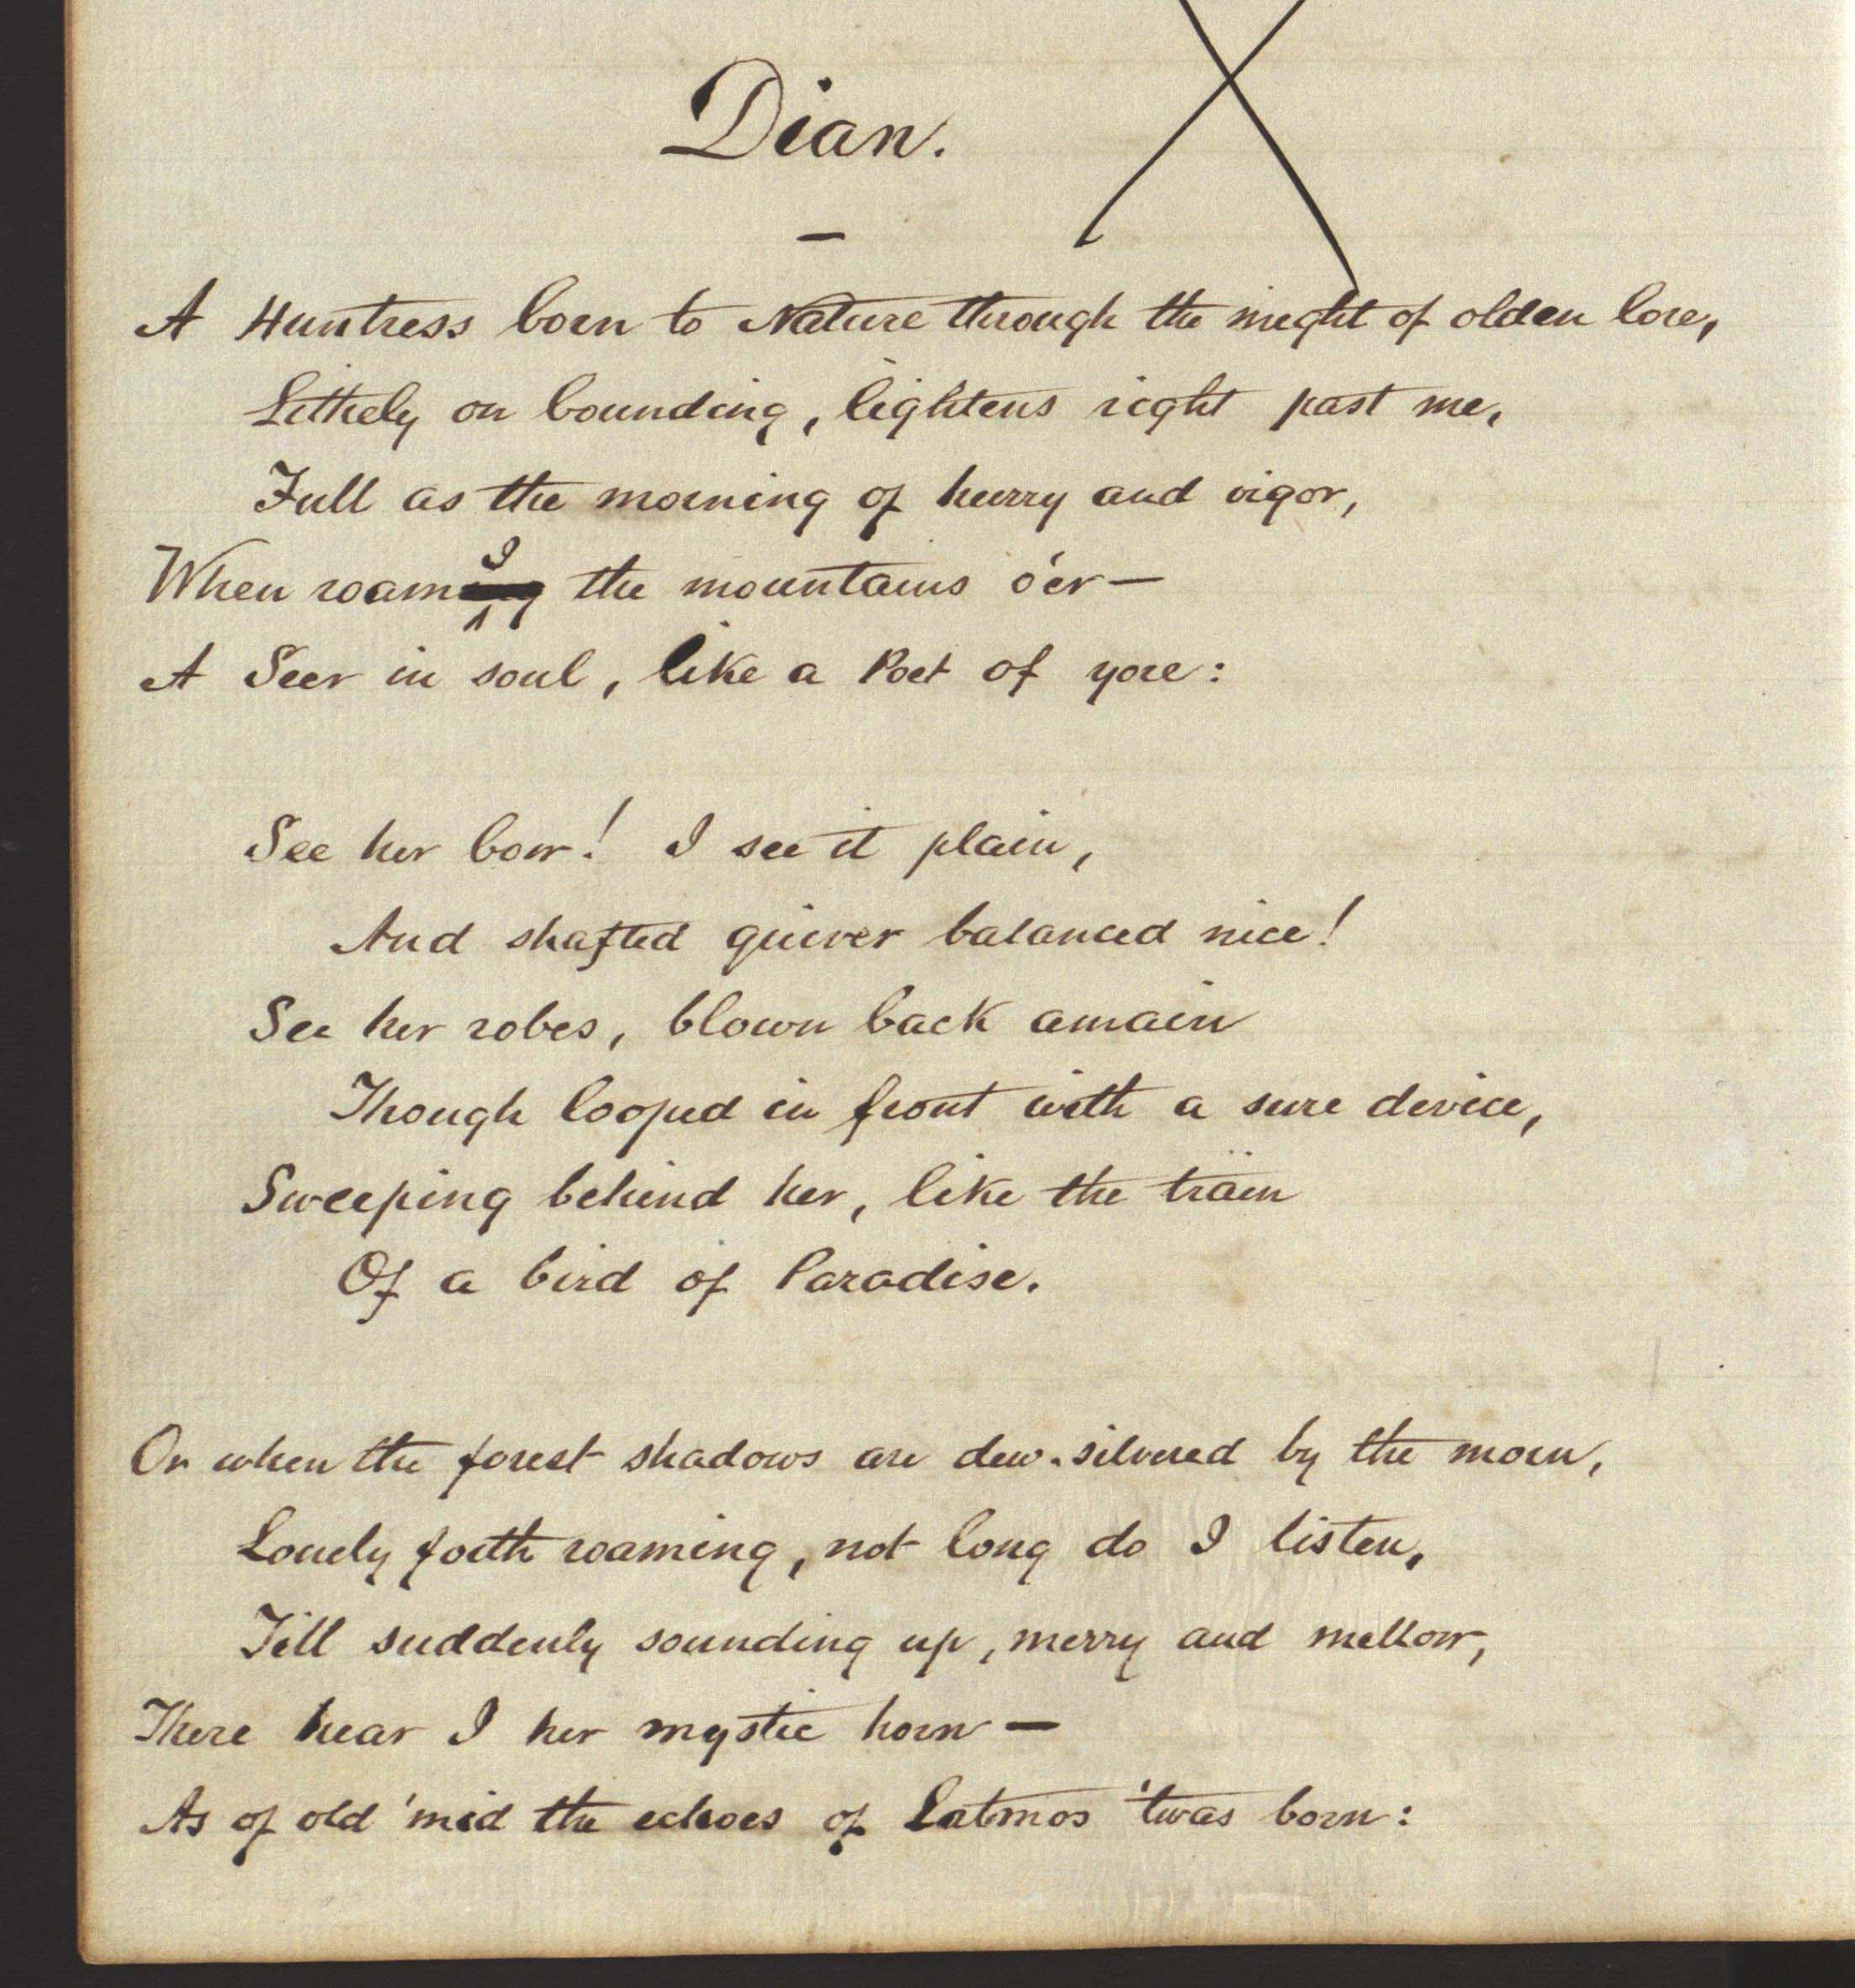 Dian.
A Huntress born to Nature through the might of olden lore,
Lithely on bounding, lightens right past me,
Full as the morning of hurry and vigor,
When roam I the mountains o'er—
A Seer in soul, like a Poet of yore:
See her bow! I see it plain,
And shafted quiver balanced nice!
See her robes, blown back amain
Though looped in front with a sure device,
Sweeping behind her, like the train
Of a bird of Paradise.
Or when the forest shadows are dew-silvered by the morn,
Lonely forth roaming, not long do I listen,
Till suddenly sounding up, merry and mellow,
There hear I her mystic horn—
As of old 'mid the echoes of Latmos 'twas born: